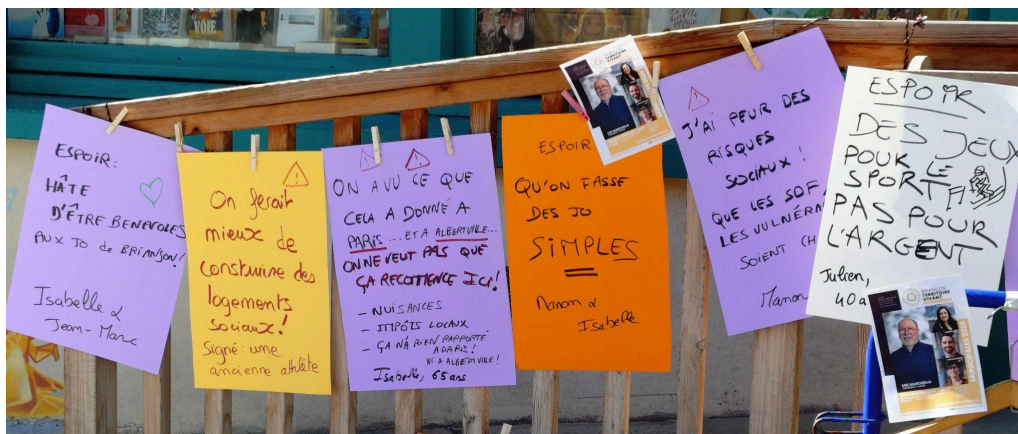 VOIE
ESPOIR:
HÂTE
D'ÊTRE BENEVOLES
AUX JO de BRIANSON!
Isabelle &
Jean-Marc
On ferait
mieux de
construire des
logements
sociaux!
Signé: une
ancienne athlète
ON A VU CE QUE
CELA A DONNÉ A
PARIS...ET A ALBERTVILLE...
ON NE VEUT PAS QUE
ÇA RECOMMENCE ICI!
- NUISANCES
- IMPÔTS LOCAUX
- ÇA N'A RIEN RAPPORTÉ
A PARIS!
NI A ALBERTVILLE!
Isabelle, 65 ans
ESPOIR
QU'ON FASSE
DES JO
SIMPLES
Manon &
Isabelle
TERRITOIRE
VIVANT
J'AI PEUR DES
RISQUES
SOCIAUX!
QUE LES SDF,
LES VULNÉRA
SOIENT CH
Manon
ESPOIR
DES JEUX
POUR LE
SPORT
PAS POUR
L'ARGENT
Julien,
40 a
BRIANÇON
TERRITOIRE
VIVANT